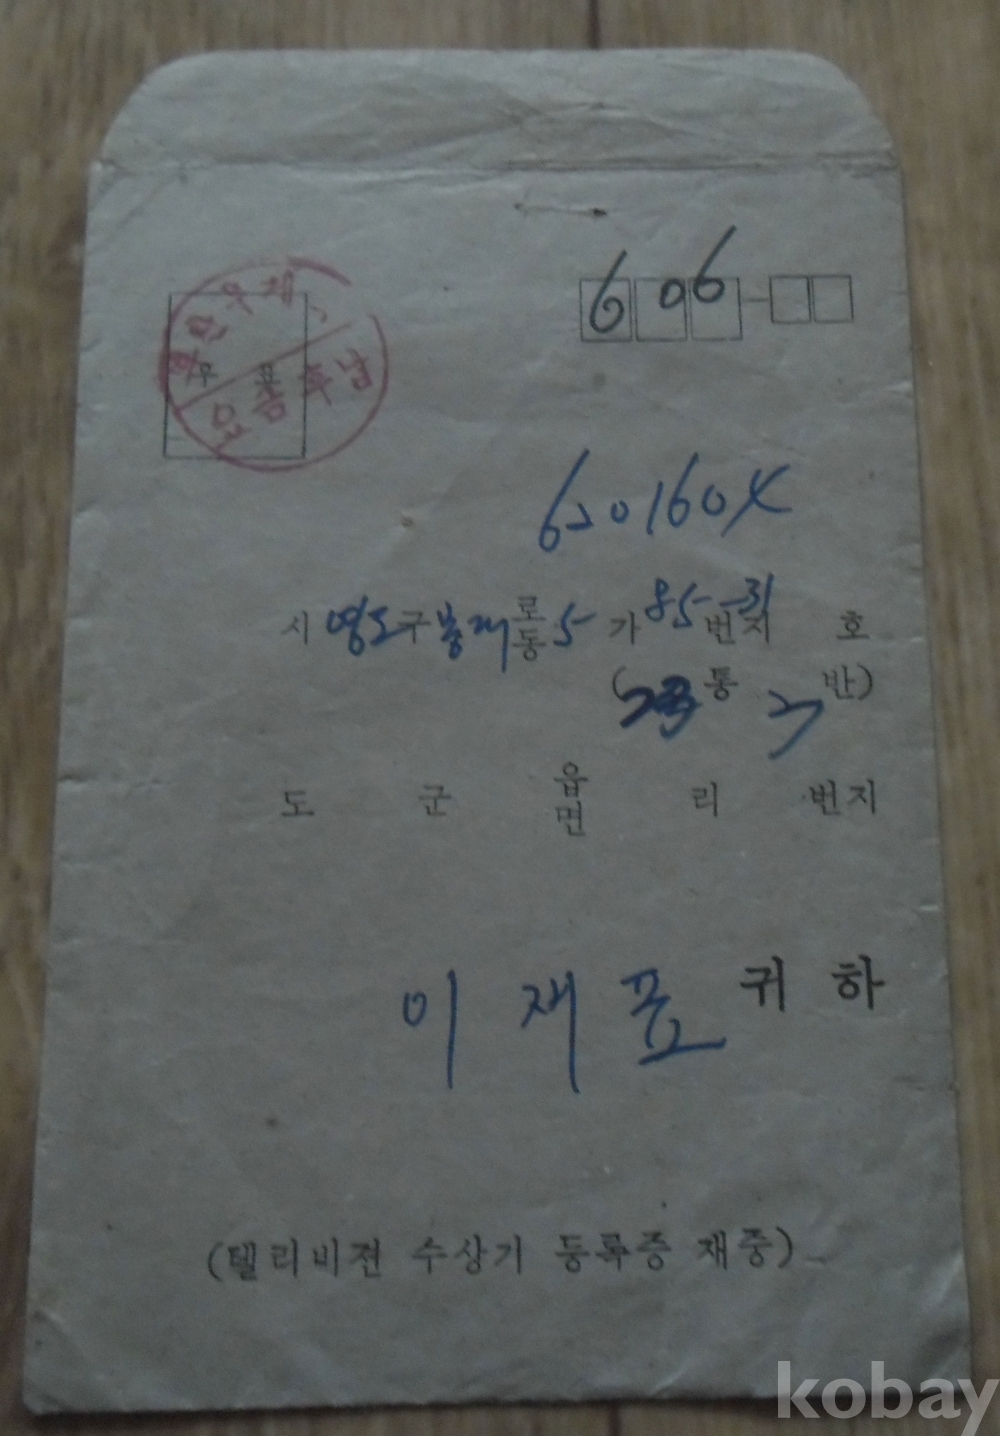 우표
요금후납
606
시 영도구 봉래 로동 5가 85-31 번지 호
( 통 반)
도 군 읍면 리 번지
이재표 귀하
(텔리비젼 수상기 등록증 재중)
kobay